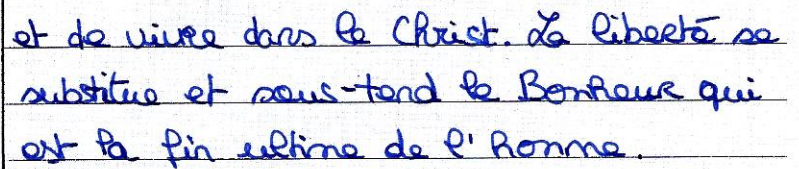 et de vivre dans le Christ. La liberté se
substitue et sous-tend le Bonheur qui
est la fin ultime de l'homme.